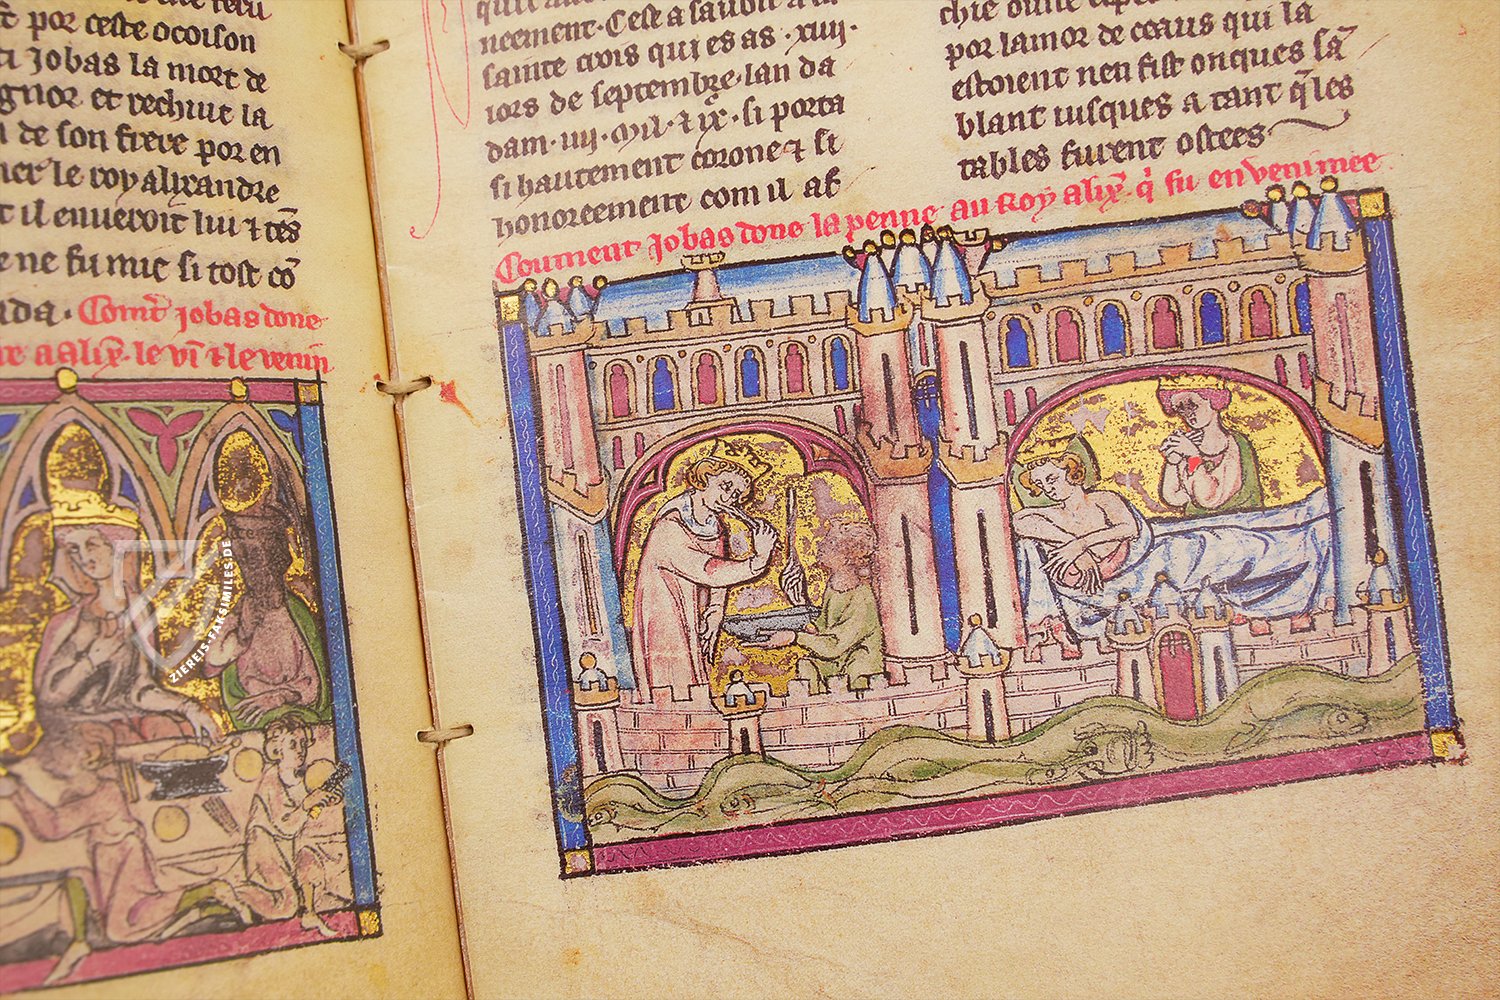 por ceste ocoison
Jobas la mort de
gnor et rechiut la
de son frere por en
le roy alixandre
il enueroit lui ⁊ ses
ne fu mie si tost
Jobas done
le vī ⁊ le venin
neement. Cest a sauoir a la
sainte crois qui es as .xiiij.
iors de septembre. lan da
dam .iiij. mil. ⁊ ix. si porta
si hautement corone ⁊ si
honoreement com il af
por lamor de ceaus qui la
estoient nen fist onques sā
blant iusques a tant q̄ les
tables furent ostees
Coument Jobas done la penne au Roy alix̄. q̇ fu enuenimee
ZIEREIS-FAKSIMILES.DE